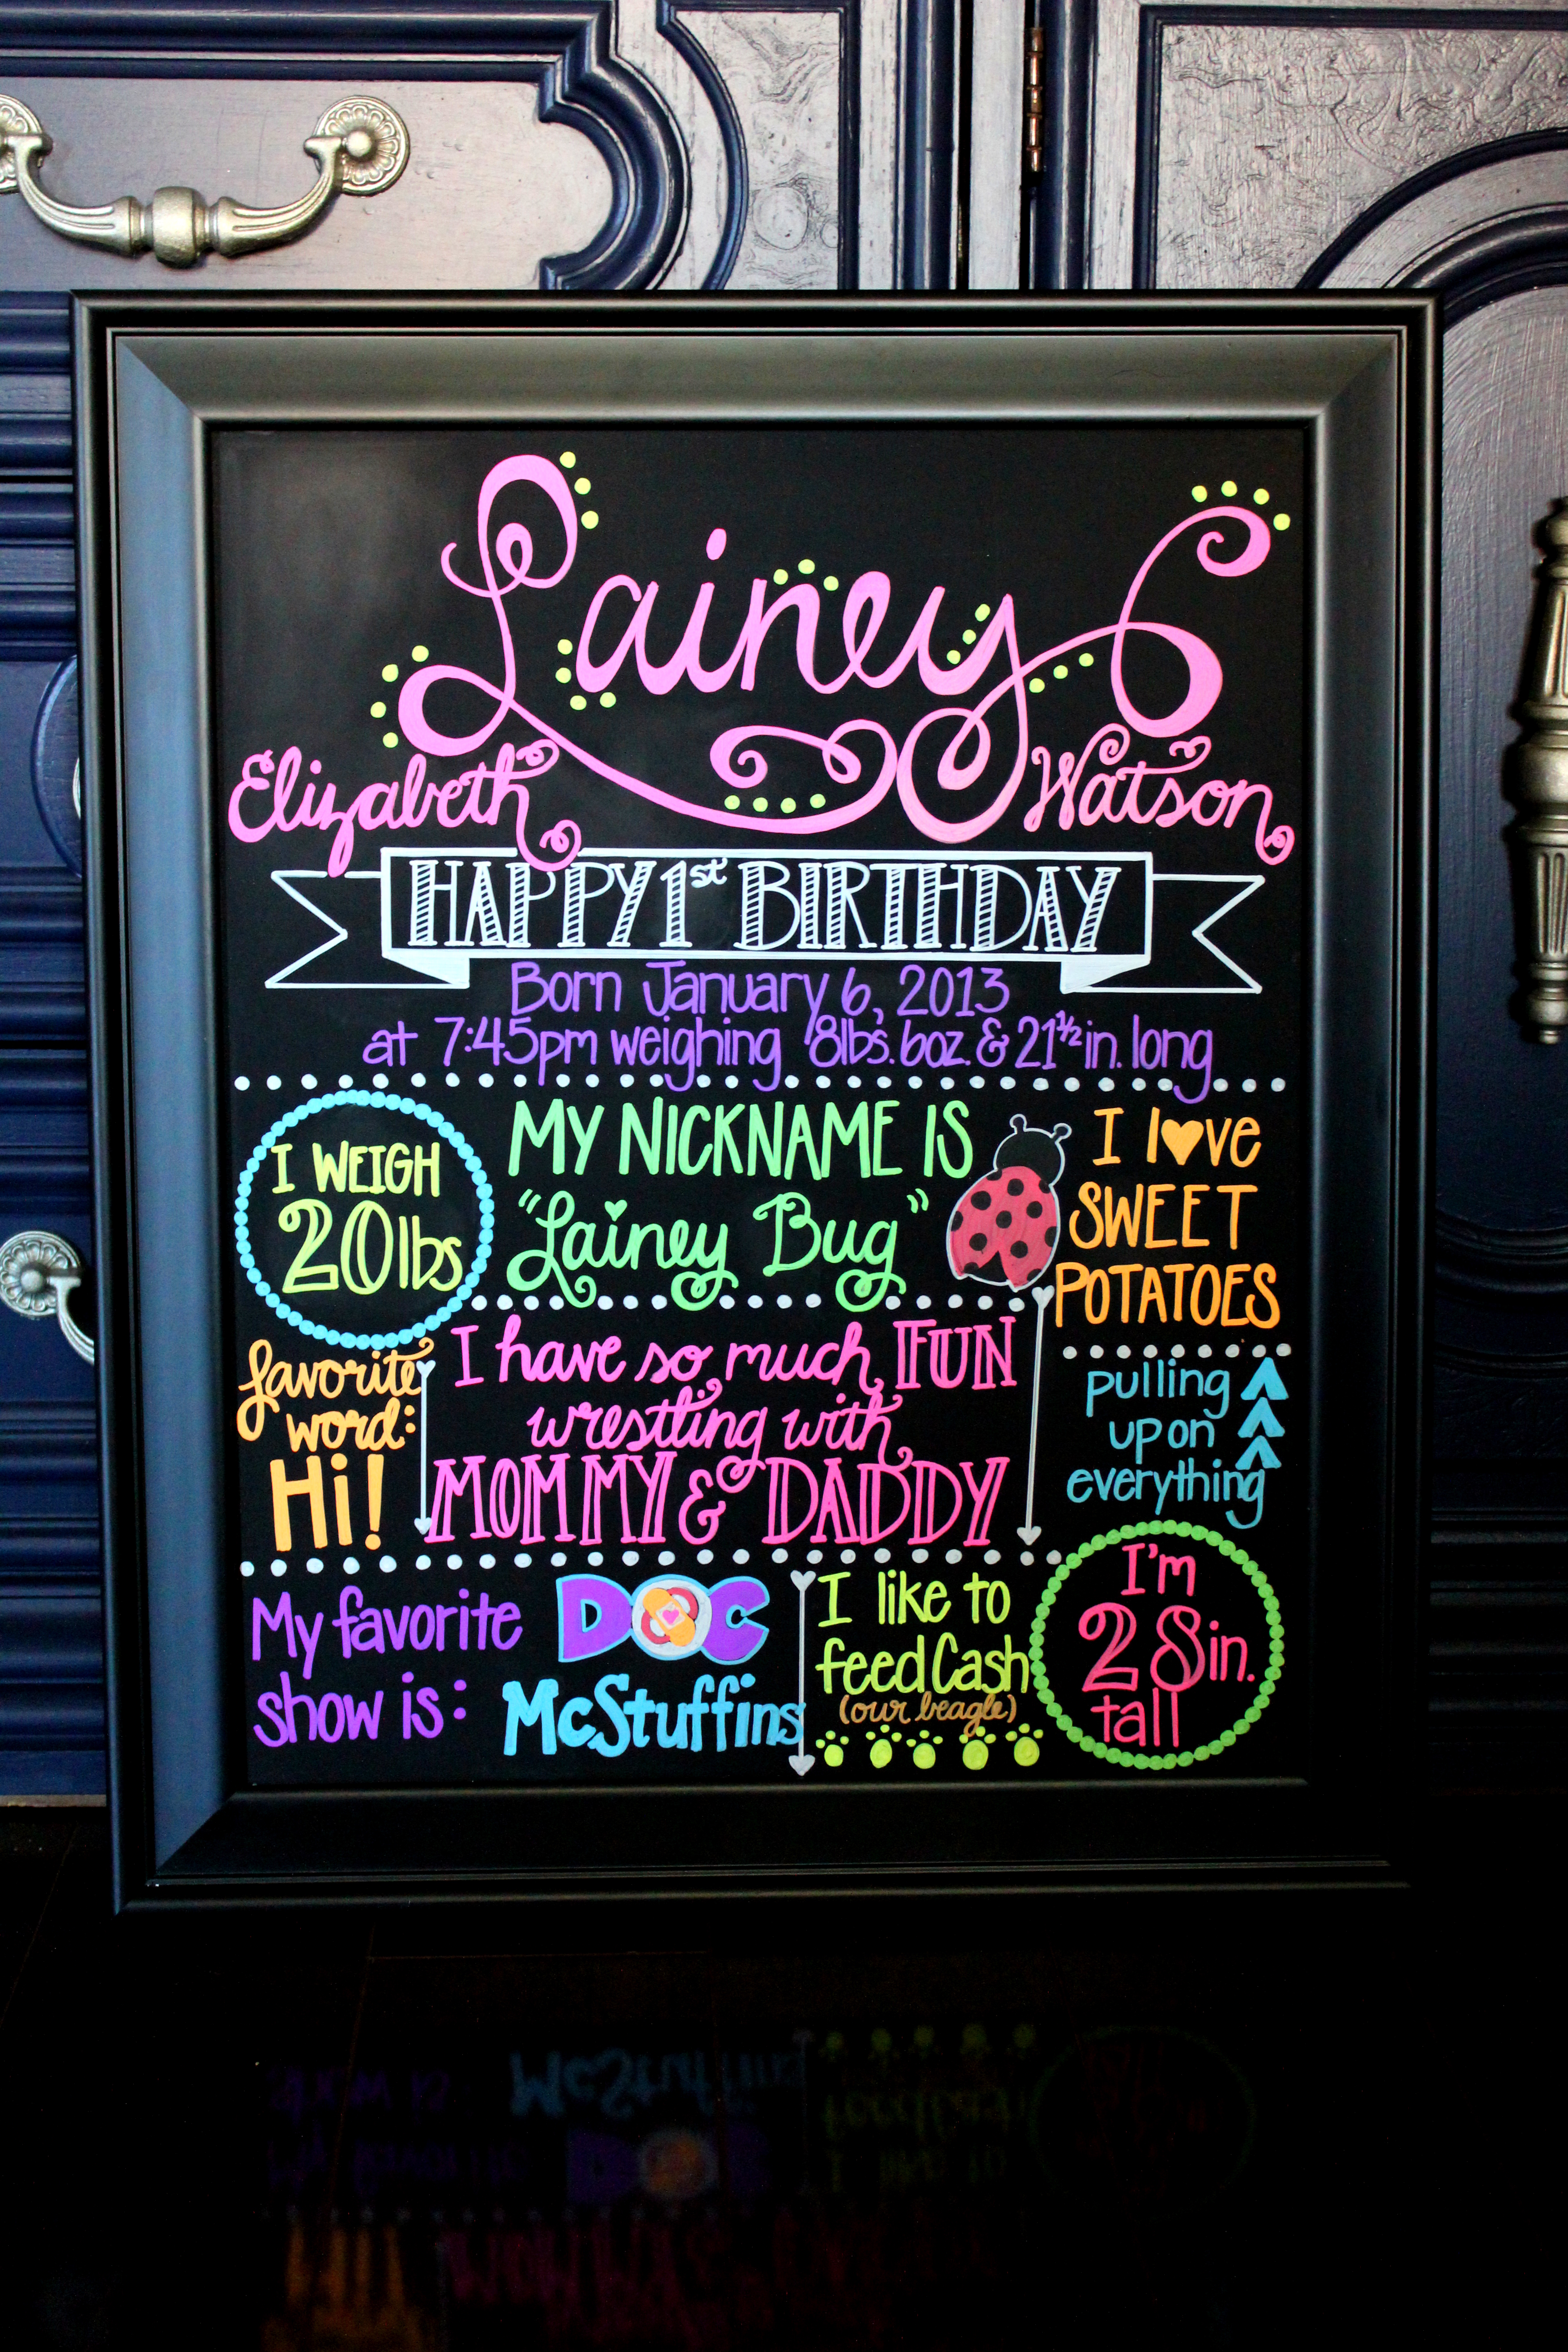 Lainey
Elizabeth Watson
HAPPY 1st BIRTHDAY
Born January 6, 2013
at 7:45pm weighing 8lbs. 6oz. & 21 1/2 in. long
I WEIGH
20lbs
MY NICKNAME IS
"Lainey Bug"
I l♥ve
SWEET
POTATOES
favorite
word:
Hi!
I have so much FUN
wrestling with
MOMMY & DADDY
pulling
up on
everything
My favorite
show is:
DOC
McStuffins
I like to
feed Cash
(our beagle)
I'm
28in.
tall